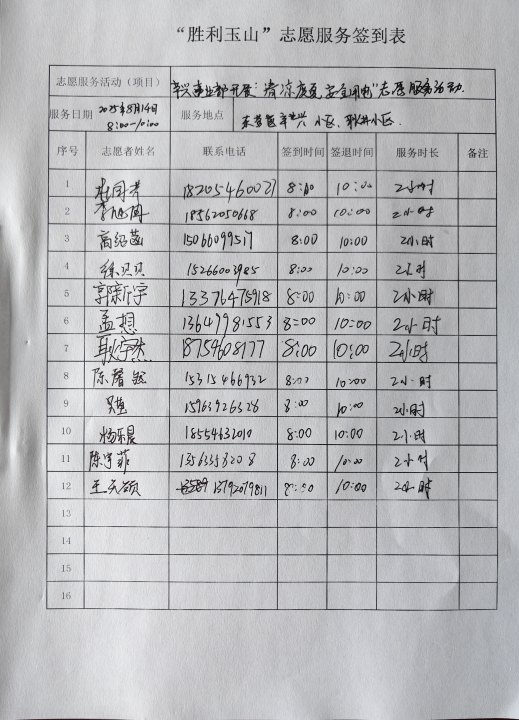 “胜利玉山”志愿服务签到表
志愿服务活动（项目） 辛兴事业部开展“清凉度夏 安全用电”志愿服务活动.
服务日期 2025年8月14日 8:00-10:00 服务地点 东营区辛兴小区、耿井小区.
序号 志愿者姓名 联系电话 签到时间 签退时间 服务时长 备注
1 杜国芳 18205460027 8:00 10:00 2小时
2 李旭周 18562050668 8:00 10:00 2小时
3 高绍菡 15066099517 8:00 10:00 2小时
4 徐贝贝 15266003985 8:00 10:00 2小时
5 郭新宇 13376475918 8:00 10:00 2小时
6 孟想 13649981553 8:00 10:00 2小时
7 耿宇杰 18754608177 8:00 10:00 2小时
8 陈馨 15315466932 8:00 10:00 2小时
9 15963926328 8:00 10:00 2小时
10 杨乐晨 18554632010 8:00 10:00 2小时
11 陈宇菲 13563358208 8:00 10:00 2小时
12 王天硕 13792079811 8:00 10:00 2小时
13
14
15
16